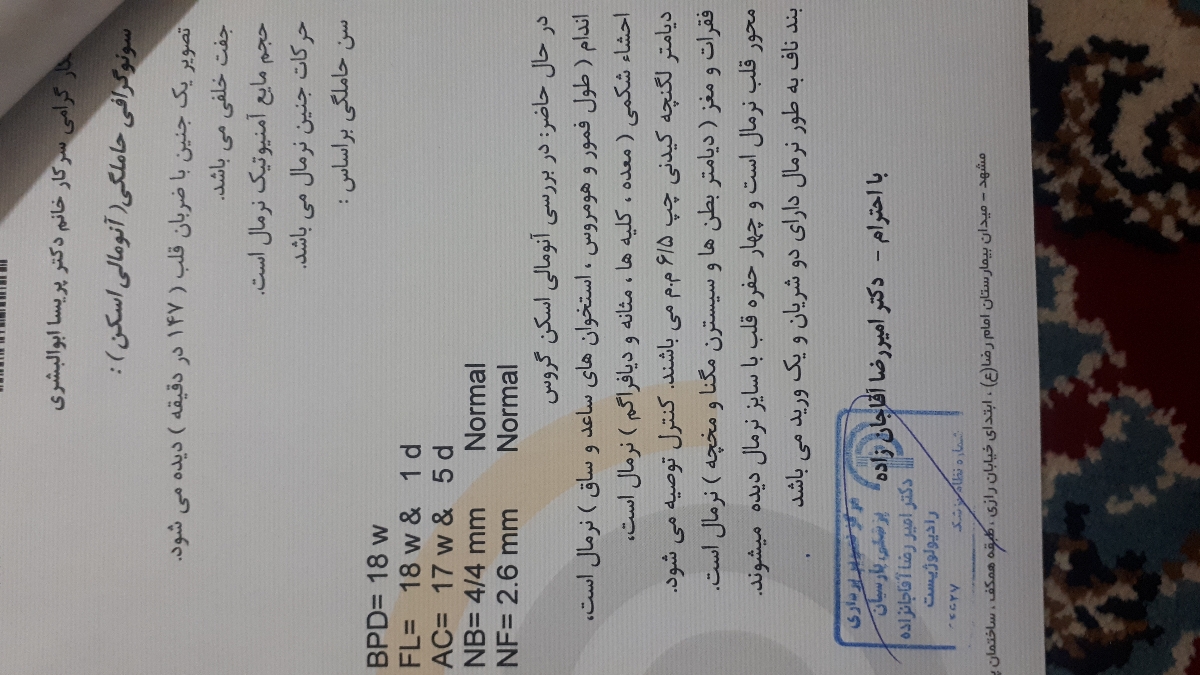 گرامی سرکار خانم دکتر پریسا ابوالبشری
سونوگرافی حاملگی( آنومالی اسکن ) :
تصویر یک جنین با ضربان قلب ( ۱۴۷ در دقیقه ) دیده می شود.
جفت خلفی می باشد.
حجم مایع آمنیوتیک نرمال است.
حرکات جنین نرمال می باشد.
سن حاملگی براساس :
BPD= 18 w
FL= 18 w & 1 d
AC= 17 w & 5 d
NB= 4/4 mm Normal
NF= 2.6 mm Normal
در حال حاضر: در بررسی آنومالی اسکن گروس
اندام ( طول فمور و هومروس ، استخوان های ساعد و ساق ) نرمال است،
احشاء شکمی ( معده ، کلیه ها ، مثانه و دیافراگم ) نرمال است،
دیامتر لگنچه کیدنی چپ ۶/۵ م.م می باشند. کنترل توصیه می شود.
فقرات و مغز ( دیامتر بطن ها و سیسترن مگنا و مخچه ) نرمال است.
محور قلب نرمال است و چهار حفره قلب با سایز نرمال دیده میشوند.
بند ناف به طور نرمال دارای دو شریان و یک ورید می باشد
.
با احترام - دکتر امیررضا آقاجان زاده
مرکز تصویر برداری
پزشکی پارسیان
دکتر امیر رضا آقاجانزاده
رادیولوژیست
شماره نظام پزشکی
مشهد - میدان بیمارستان امام رضا(ع) ، ابتدای خیابان رازی ، طبقه همکف ، ساختمان